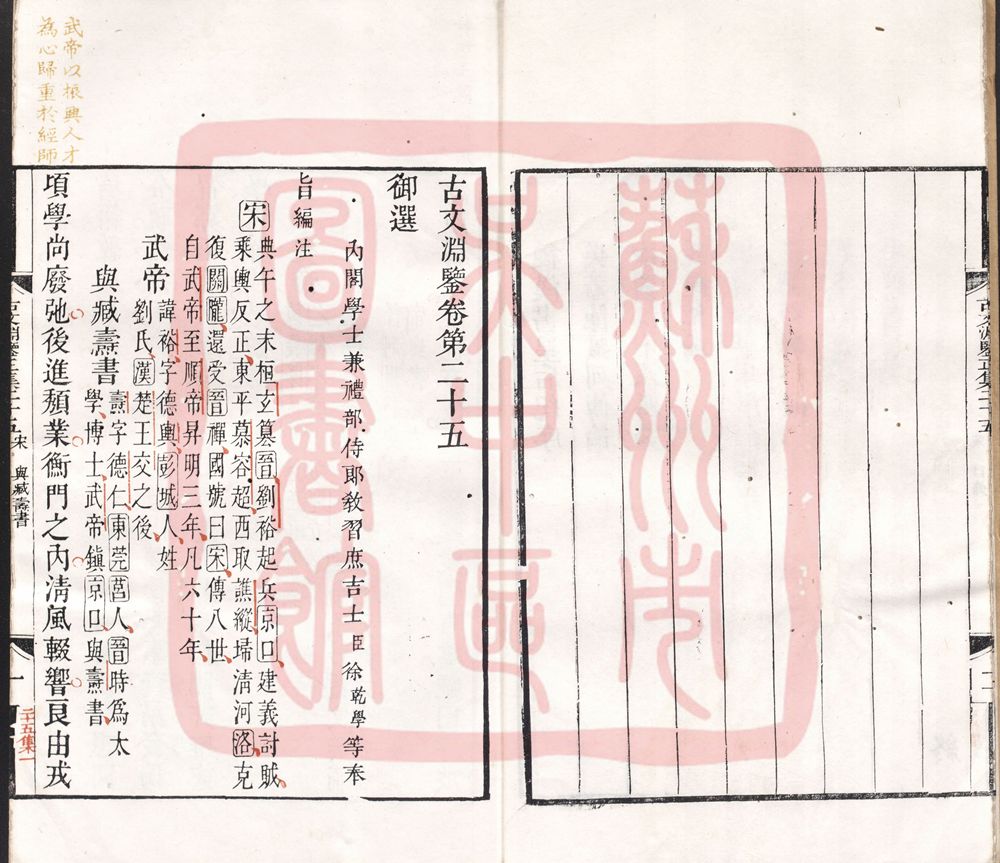 古文淵鑒卷第二十五
御選
內閣學士兼禮部侍郎教習庶吉士臣徐乾學等奉
旨編注
宋
典午之末桓玄篡晉劉裕起兵京口建義討賊
乘輿反正東平慕容超西取譙縱掃清河洛克
復關隴還受晉禪國號曰宋傳八世
自武帝至順帝昇明三年凡六十年
武帝
諱裕字德輿彭城人姓
劉氏漢楚王交之後
與臧壽書
燾字德仁東莞莒人晉時爲太
學博士武帝鎮京口與燾書
項學尚廢弛後進頹業衡門之內清風輟響良由戎
武帝以振興人才
為心歸重於經師
宋 與臧燾書
一
二十五集一
蘇州市
文中區
圖書館